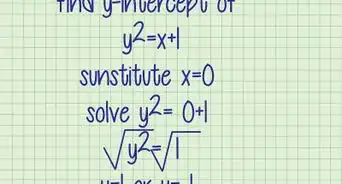 find y-intercept of
y²=x+1
sunstitute x=0
solve y²= 0+1
√y²=√1
y=1 or y=-1